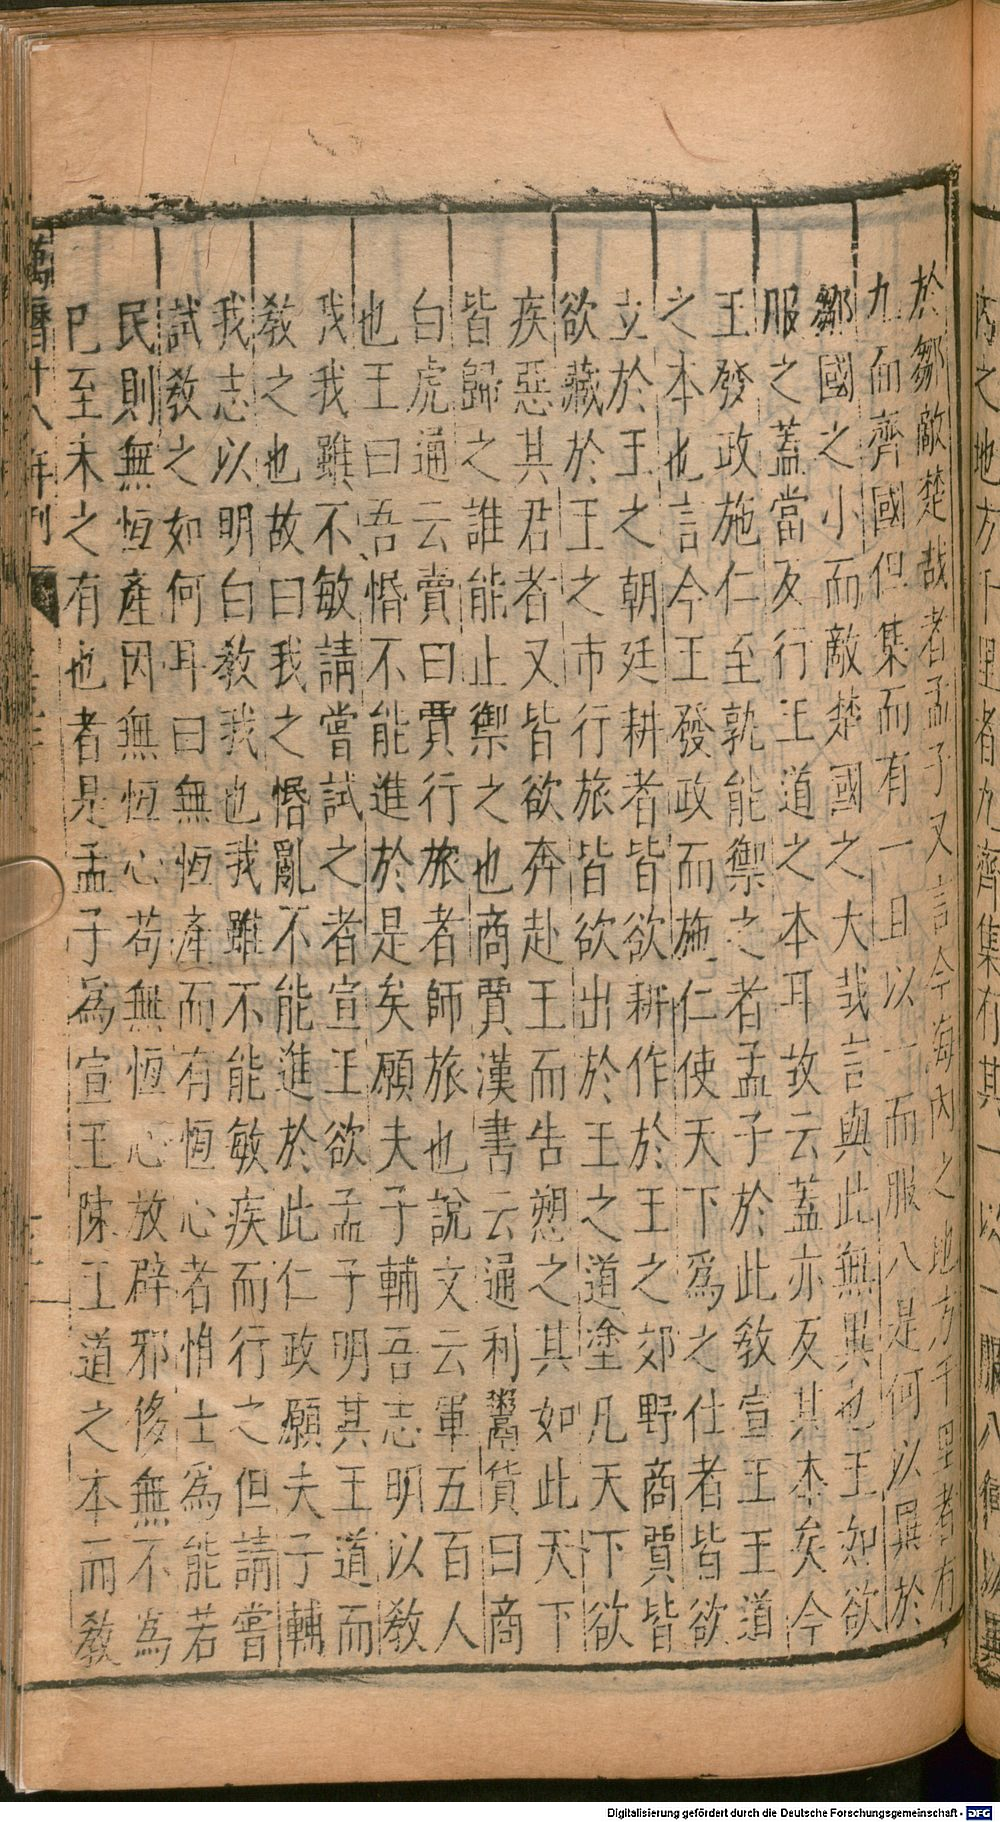 於鄒敵楚哉者孟子又言今海內之地方千里者有
九而齊國但集而有一且以一而服八是何以異於
鄒國之小而敵楚國之大哉言與此無異也王如欲
服之蓋當反行王道之本耳故云蓋亦反其本矣今
王發政施仁至孰能禦之者孟子於此教宣王王道
之本也言今王發政而施仁使天下為之仕者皆欲
立於王之朝廷耕者皆欲耕作於王之郊野商賈皆
欲藏於王之市行旅皆欲出於王之道塗凡天下欲
疾惡其君者又皆欲奔赴王而告愬之其如此天下
皆歸之誰能止禦之也商賈漢書云通利鬻貨曰商
白虎通云賣曰賈行旅者師旅也說文云軍五百人
也王曰吾惛不能進於是矣願夫子輔吾志明以教
我我雖不敏請嘗試之者宣王欲孟子明其王道而
教之也故曰我之惛亂不能進於此仁政願夫子輔
我志以明白教我也我雖不能敏疾而行之但請嘗
試教之如何耳曰無恆產而有恆心者惟士為能若
民則無恆產因無恆心苟無恆心放辟邪侈無不為
巳至未之有也者是孟子為宣王陳王道之本而教
萬曆十八年刊
內之地方千里者九齊集有其一以一服八何以異
Digitalisierung gefördert durch die Deutsche Forschungsgemeinschaft - DFG